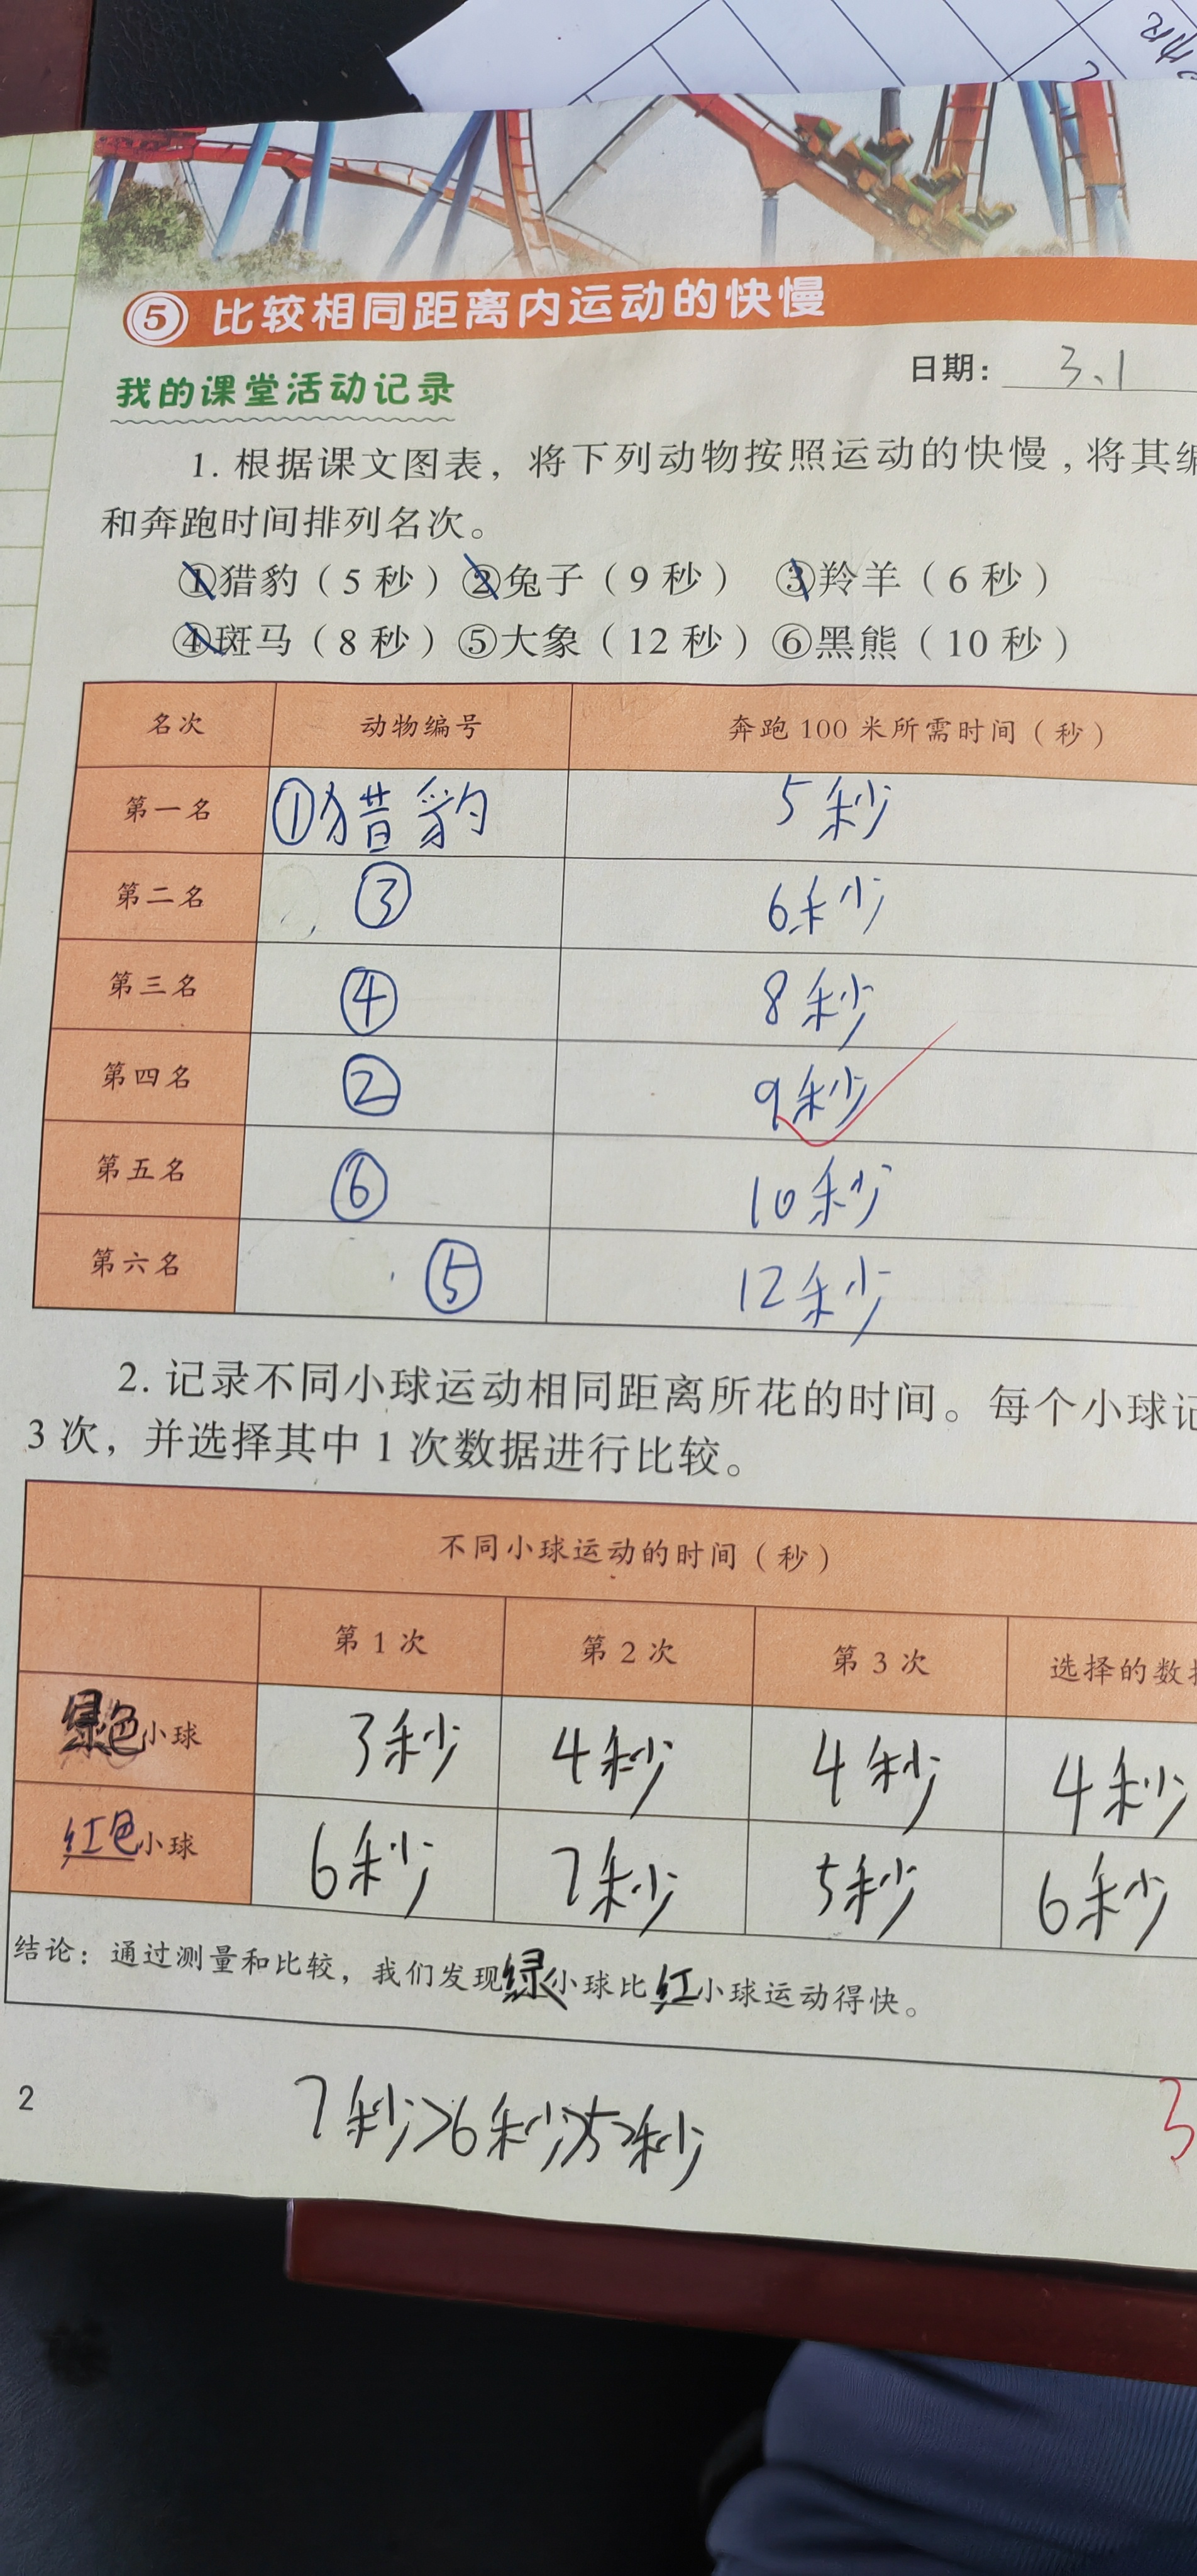 ⑤ 比较相同距离内运动的快慢
我的课堂活动记录
日期: 3、1
1. 根据课文图表，将下列动物按照运动的快慢，将其编
和奔跑时间排列名次。
①猎豹（5 秒）②兔子（9 秒） ③羚羊（6 秒）
④斑马（8 秒）⑤大象（12 秒）⑥黑熊（10 秒）
名次 动物编号 奔跑 100 米所需时间（秒）
第一名 ①猎豹 5秒
第二名 ③ 6秒
第三名 ④ 8秒
第四名 ② 9秒
第五名 ⑥ 10秒
第六名 ⑤ 12秒
2. 记录不同小球运动相同距离所花的时间。每个小球记
3 次，并选择其中 1 次数据进行比较。
不同小球运动的时间（秒）
第 1 次 第 2 次 第 3 次 选择的数据
绿色小球 3秒 4秒 4秒 4秒
红色小球 6秒 7秒 5秒 6秒
结论：通过测量和比较，我们发现绿小球比红小球运动得快。
2
7秒>6秒>5秒
3